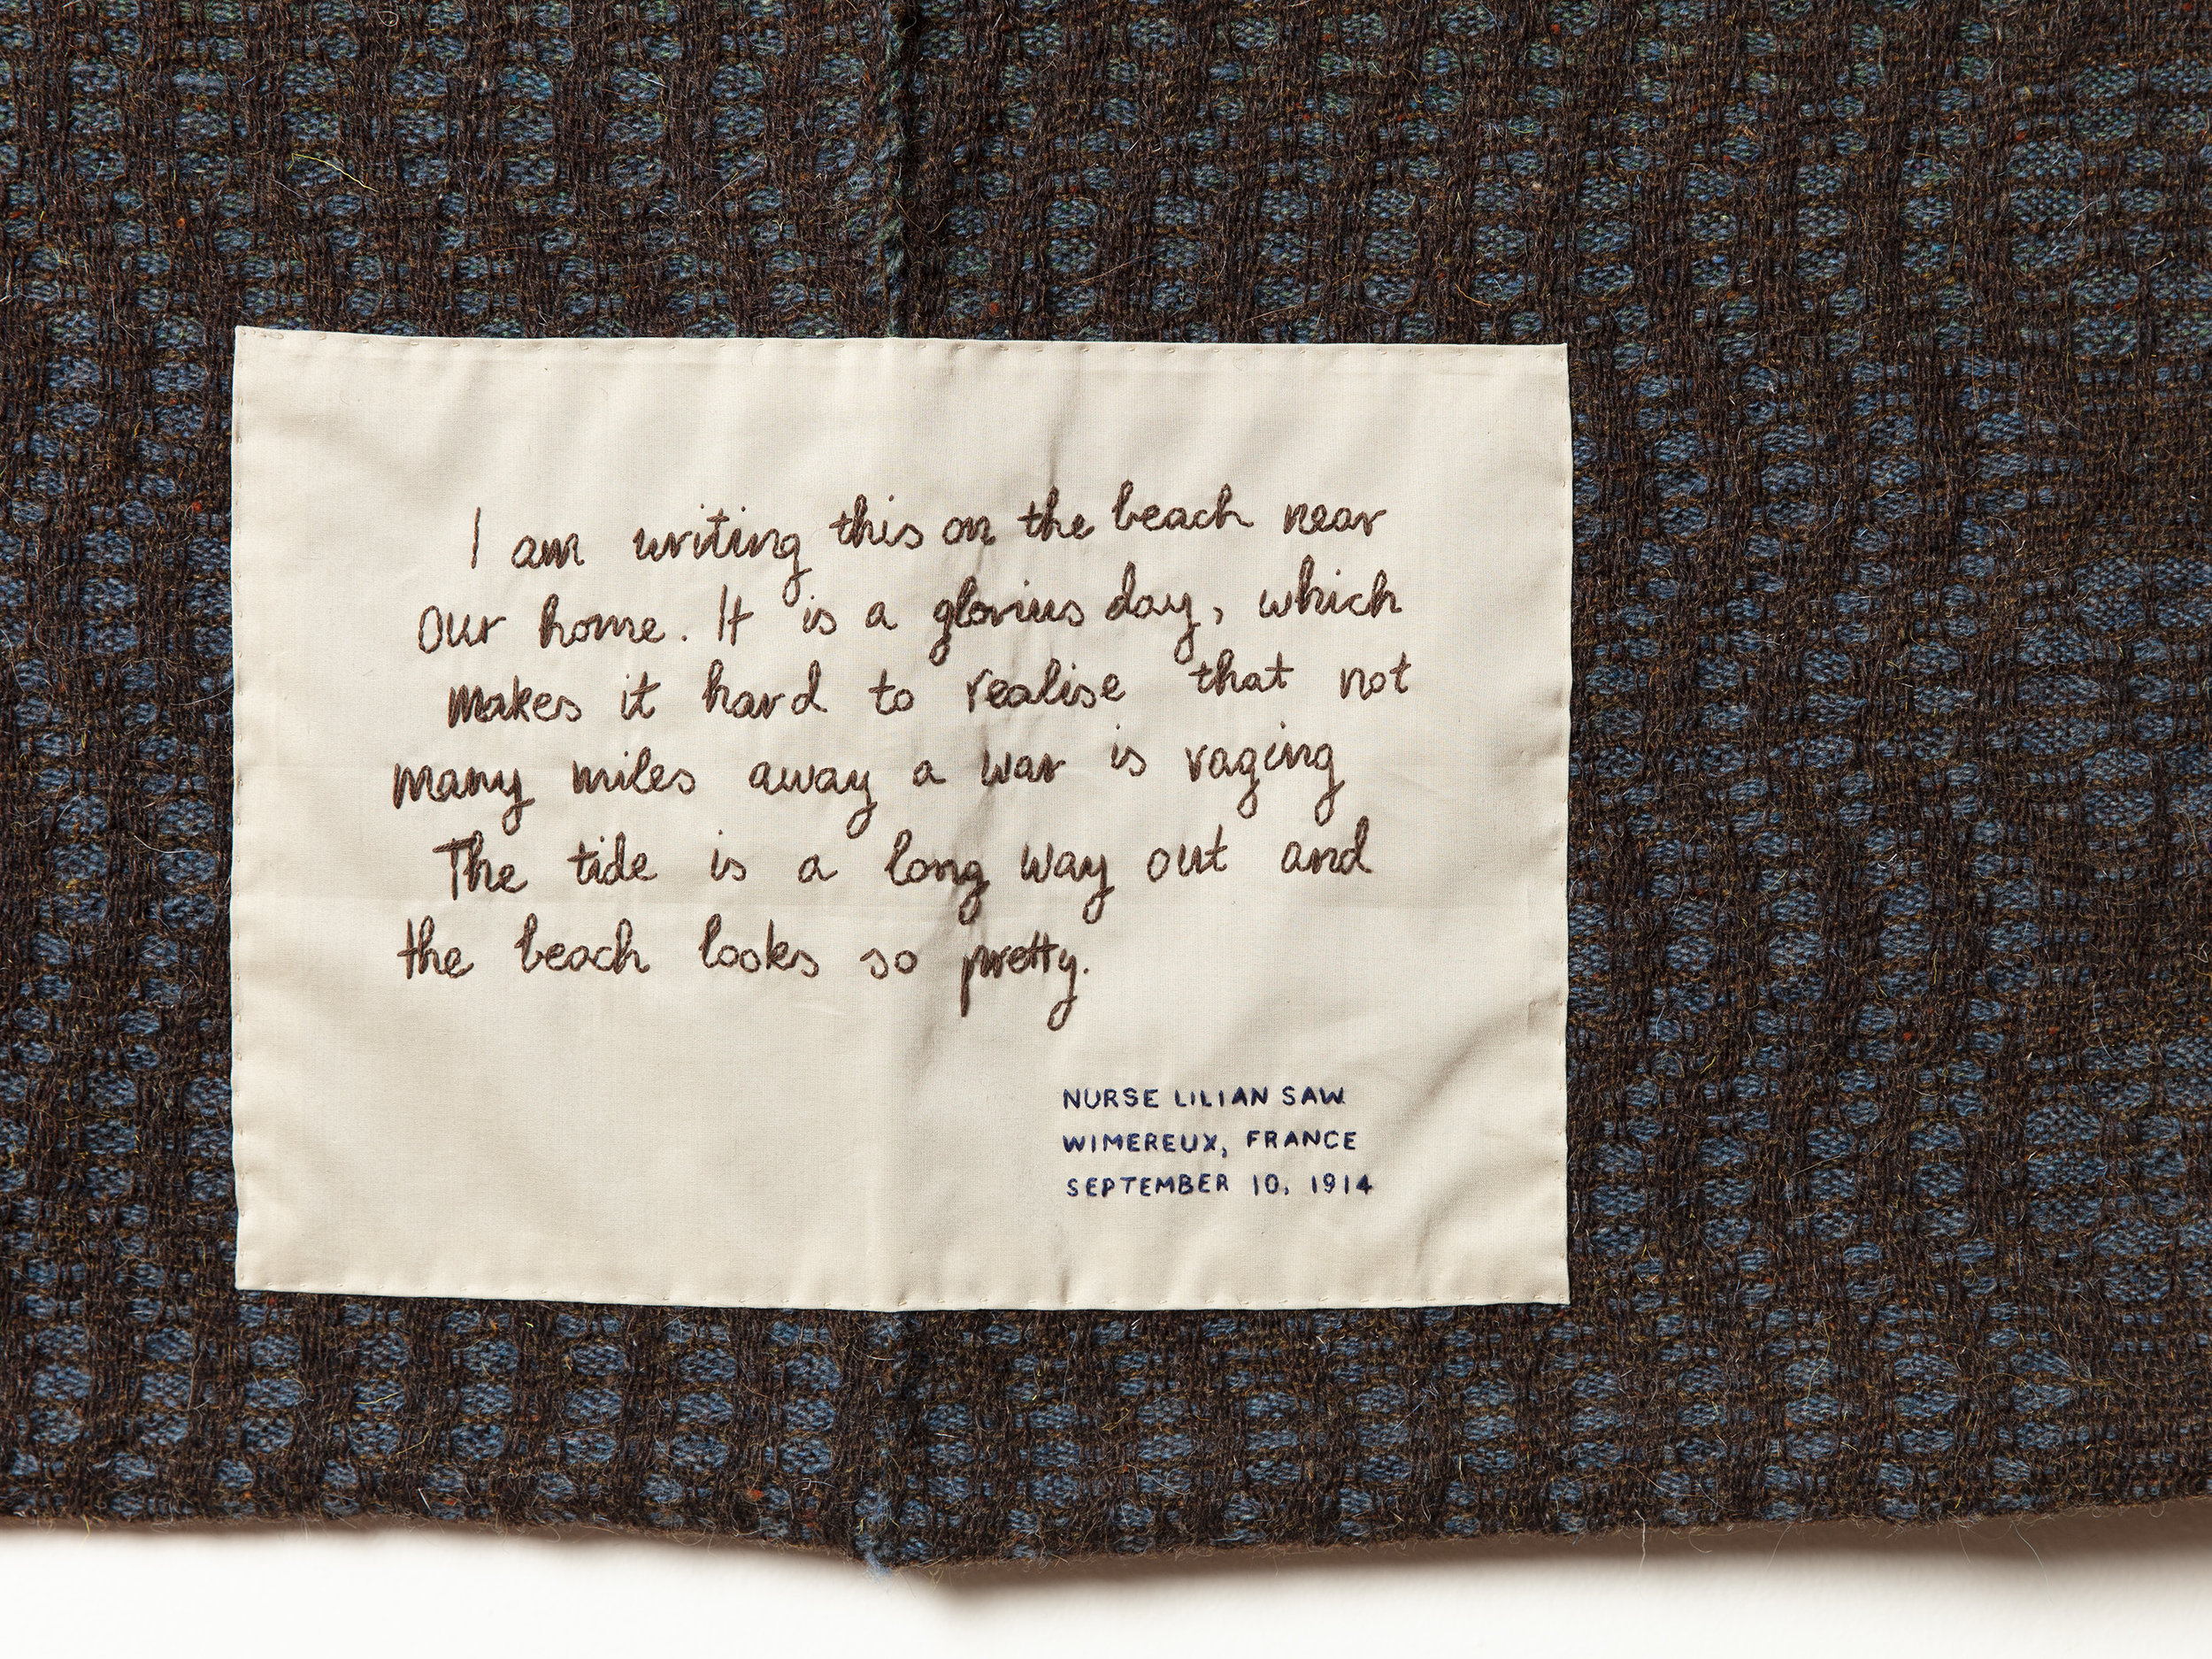 I am writing this on the beach near
our home. It is a glorius day, which
makes it hard to realise that not
many miles away a war is raging
The tide is a long way out and
the beach looks so pretty.
NURSE LILIAN SAW
WIMEREUX, FRANCE
SEPTEMBER 10, 1914